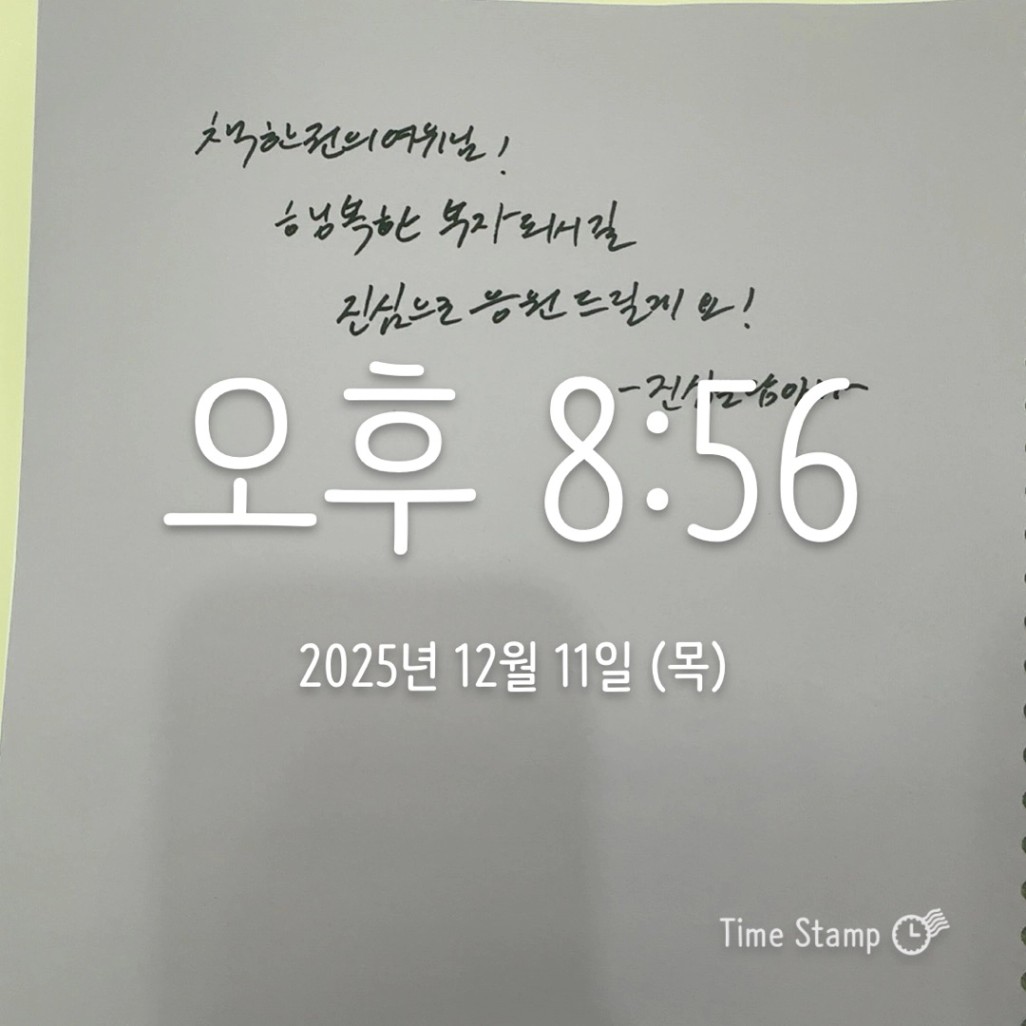 책한권의여유님!
행복한 부자되시길
진심으로 응원드릴게요!
오후 8:56
2025년 12월 11일 (목)
Time Stamp